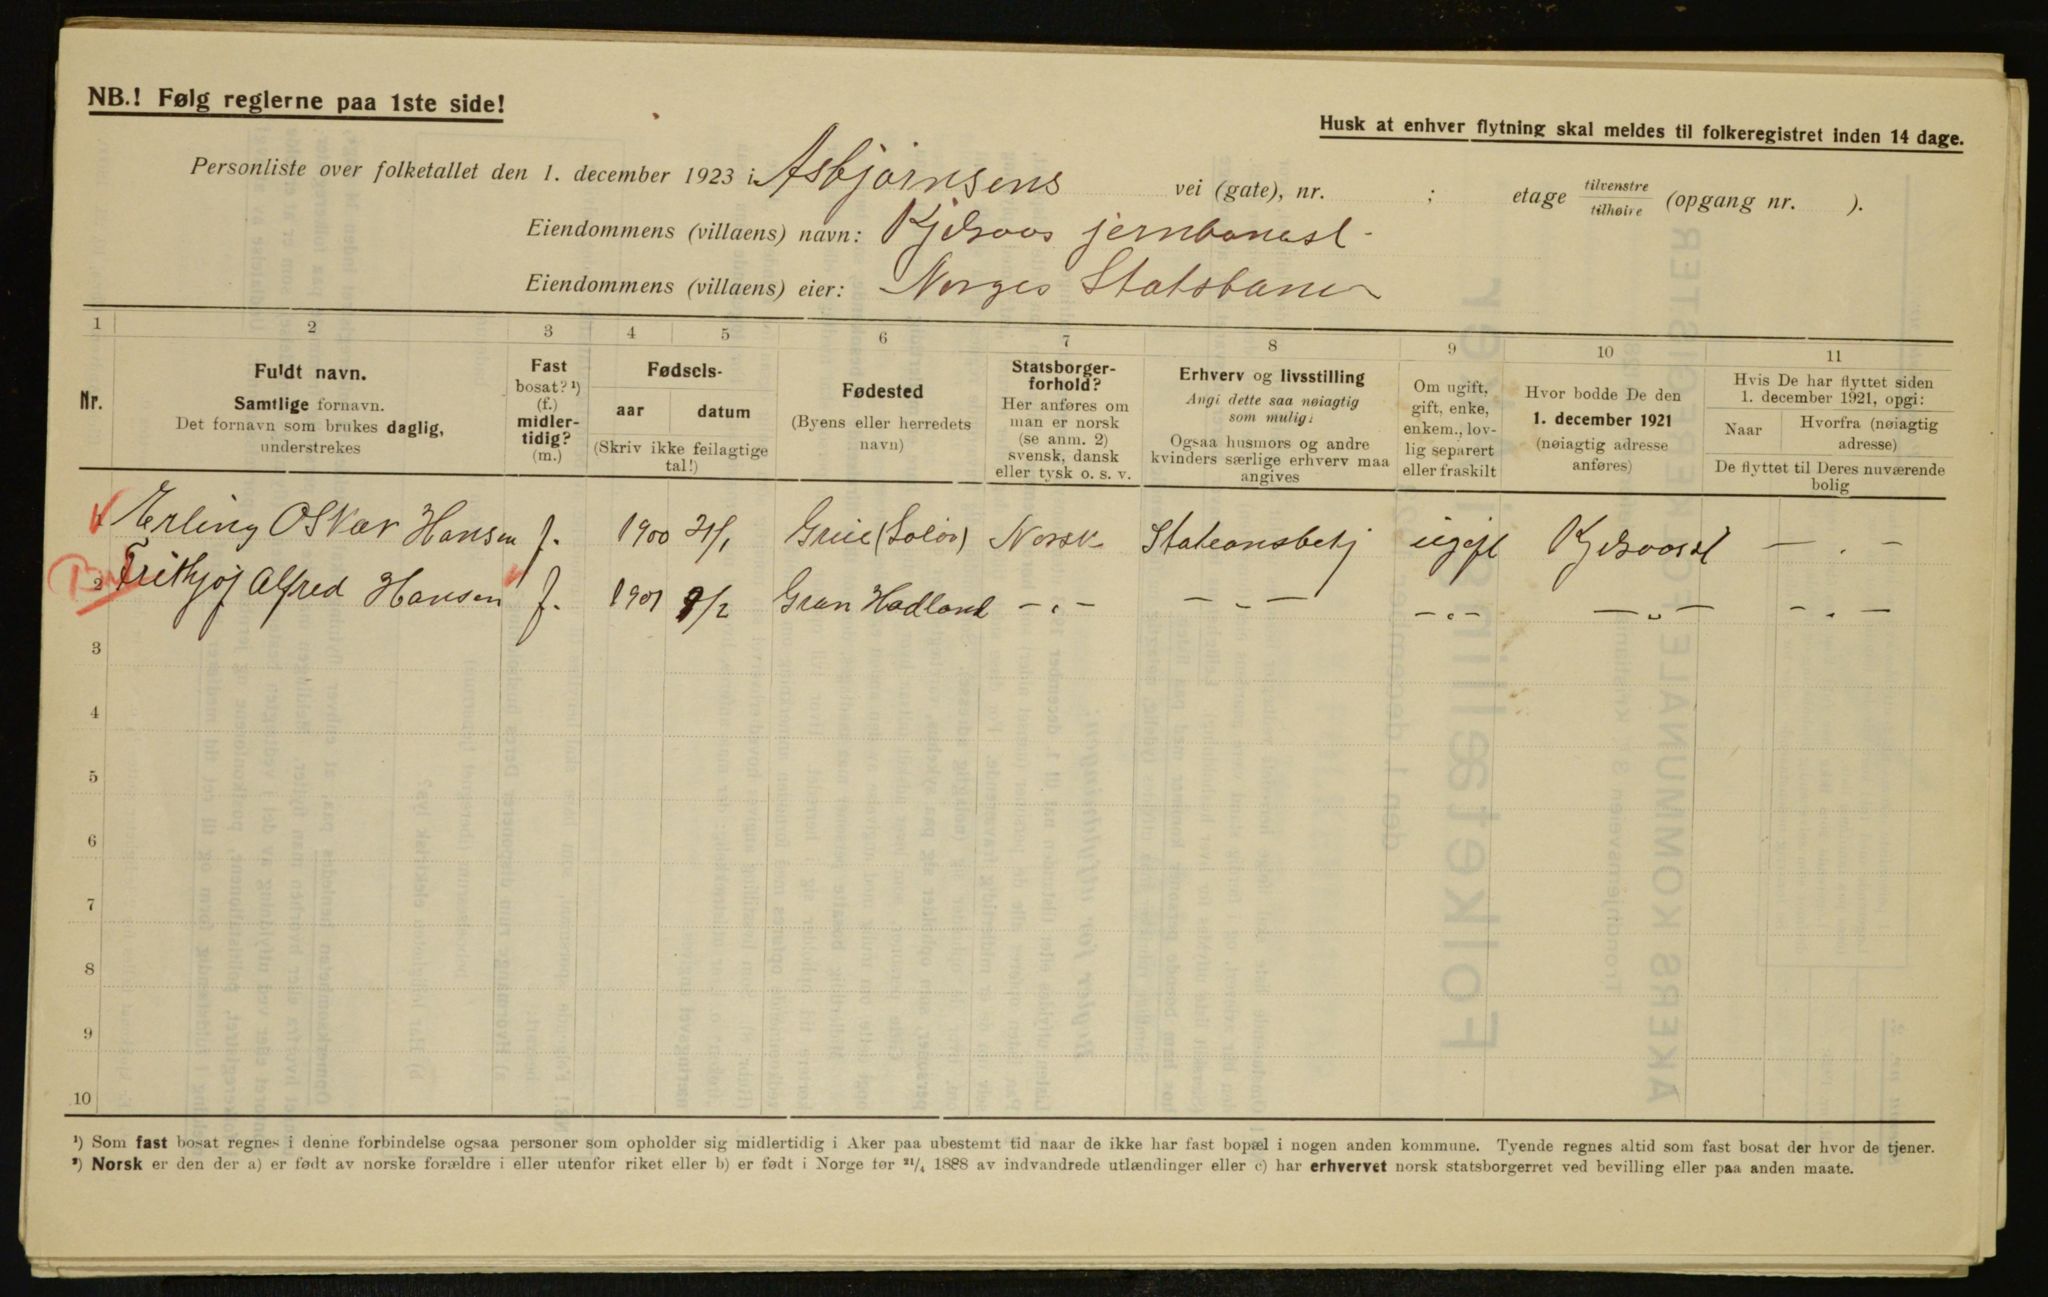 NB.! Følg reglerne paa 1ste side!
Husk at enhver flytning skal meldes til folkeregistret inden 14 dage.
Personliste over folketallet den 1. december 1923 i Asbjørnsens vei (gate), nr. ; etage tilvenstre / tilhøire (opgang nr. ).
Eiendommens (villaens) navn: Kjelsaas jernbanest.
Eiendommens (villaens) eier: Norges Statsbaner
1 2 3 4 5 6 7 8 9 10 11
Nr.
Fuldt navn.
Samtlige fornavn.
Det fornavn som brukes daglig,
understrekes
Fast
bosat? ¹)
(f.)
midler-
tidig?
(m.)
Fødsels-
aar datum
(Skriv ikke feilagtige
tal!)
Fødested
(Byens eller herredets
navn)
Statsborger-
forhold?
Her anføres om
man er norsk
(se anm. 2)
svensk, dansk
eller tysk o. s. v.
Erhverv og livsstilling
Angi dette saa nøiagtig
som mulig!
Ogsaa husmors og andre
kvinders særlige erhverv maa
angives
Om ugift,
gift, enke,
enkem., lov-
lig separert
eller fraskilt
Hvor bodde De den
1. december 1921
(nøiagtig adresse
anføres)
Hvis De har flyttet siden
1. december 1921, opgi:
Naar
Hvorfra (nøiagtig
adresse)
De flyttet til Deres nuværende
bolig
Erling Oskar Hansen f. 1900 Grue (Solør) Norsk Stationsbetj ugift Kjelsaas st — . —
2 Frithjof Alfred Hansen f. 1901 9/2 Gran Hadland — . — — „ — — „ — — „ — — „ —
3
4
5
6
7
8
9
10
¹) Som fast bosat regnes i denne forbindelse ogsaa personer som opholder sig midlertidig i Aker paa ubestemt tid naar de ikke har fast bopæl i nogen anden kommune. Tyende regnes altid som fast bosat der hvor de tjener.
²) Norsk er den der a) er født av norske forældre i eller utenfor riket eller b) er født i Norge før 21/4 1888 av indvandrede utlændinger eller c) har erhvervet norsk statsborgerret ved bevilling eller paa anden maate.